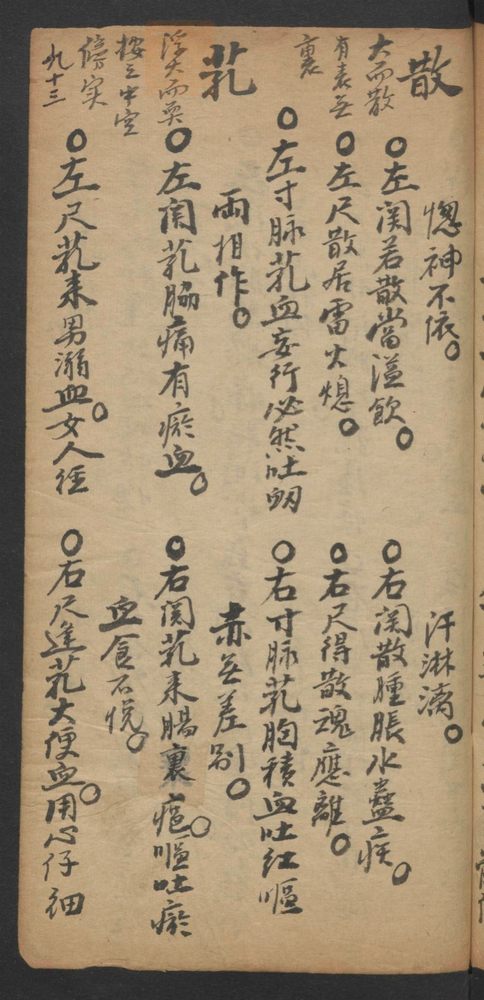 散
大而散
有表无
裏
惚神不依。
汗淋漓。
○左関若散當溢飲。
○右関散腫脹水蠱疾。
○左尺散居雷火熄。
○右尺得散魂應離。
芤
浮大而耎
按之中空
傍実
○左寸脉芤血妄行必然吐衂
○右寸脉芤胸積血吐紅嘔
兩相作。
赤无差别。
○左関芤脇痛有瘀血。
○右関芤来腸裏癰。嘔吐瘀
血食不悦。
○左尺芤来男溺血。女人経
○右尺逢芤大便血。用心仔細
九十三